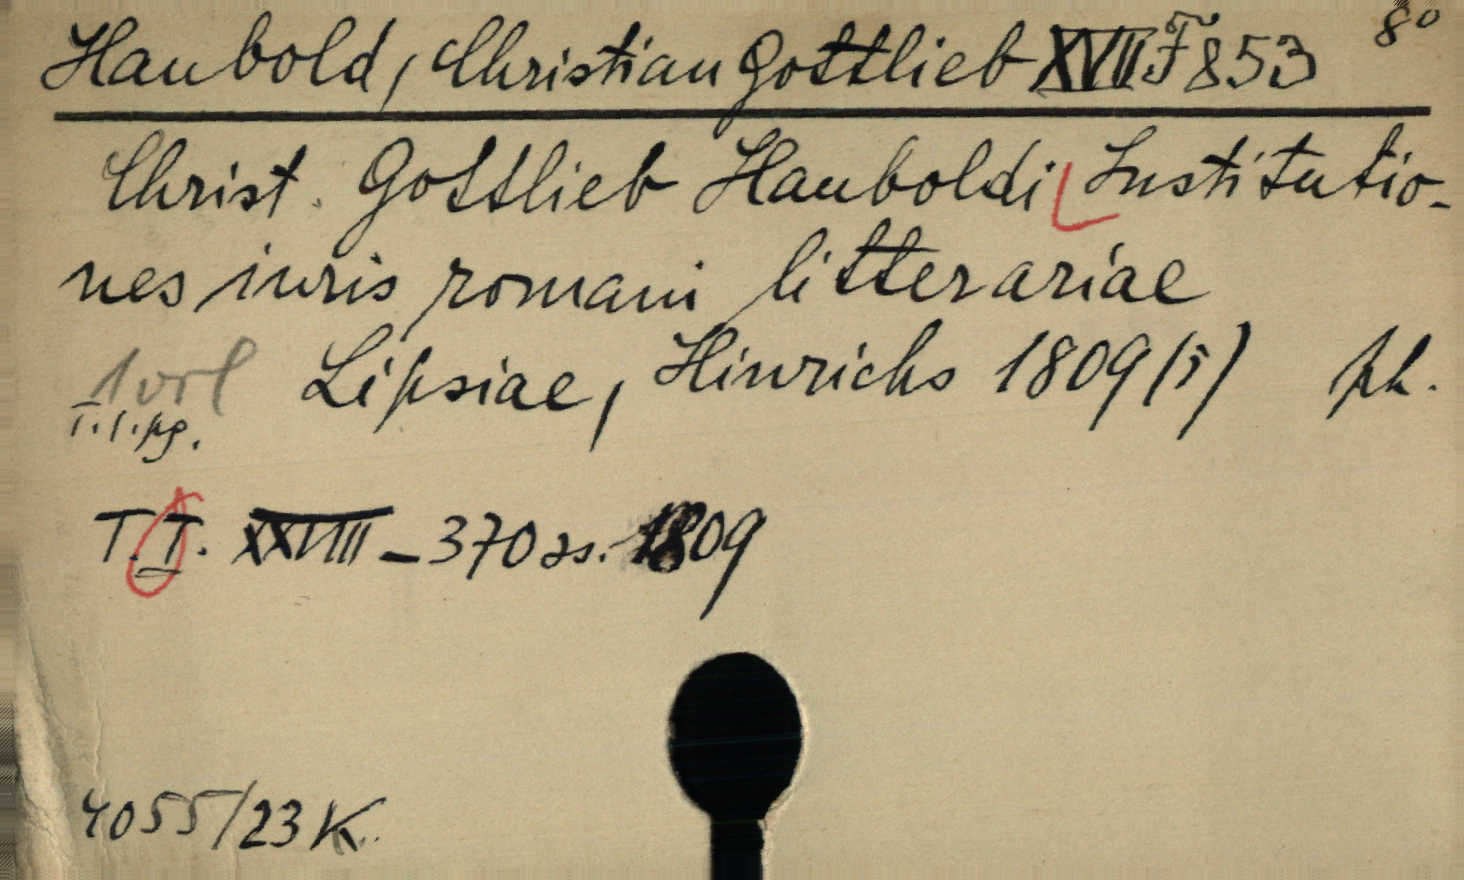 Haubold, Christian Gottlieb XVII F 853 8°
Christ. Gottlieb Hauboldi Institutio-
nes iuris romani litterariae
Lipsiae, Hinrichs 1809(5) ph.
T. I. pg.
T. I. XXVIII - 370 ss. 1809
4055/23 K.